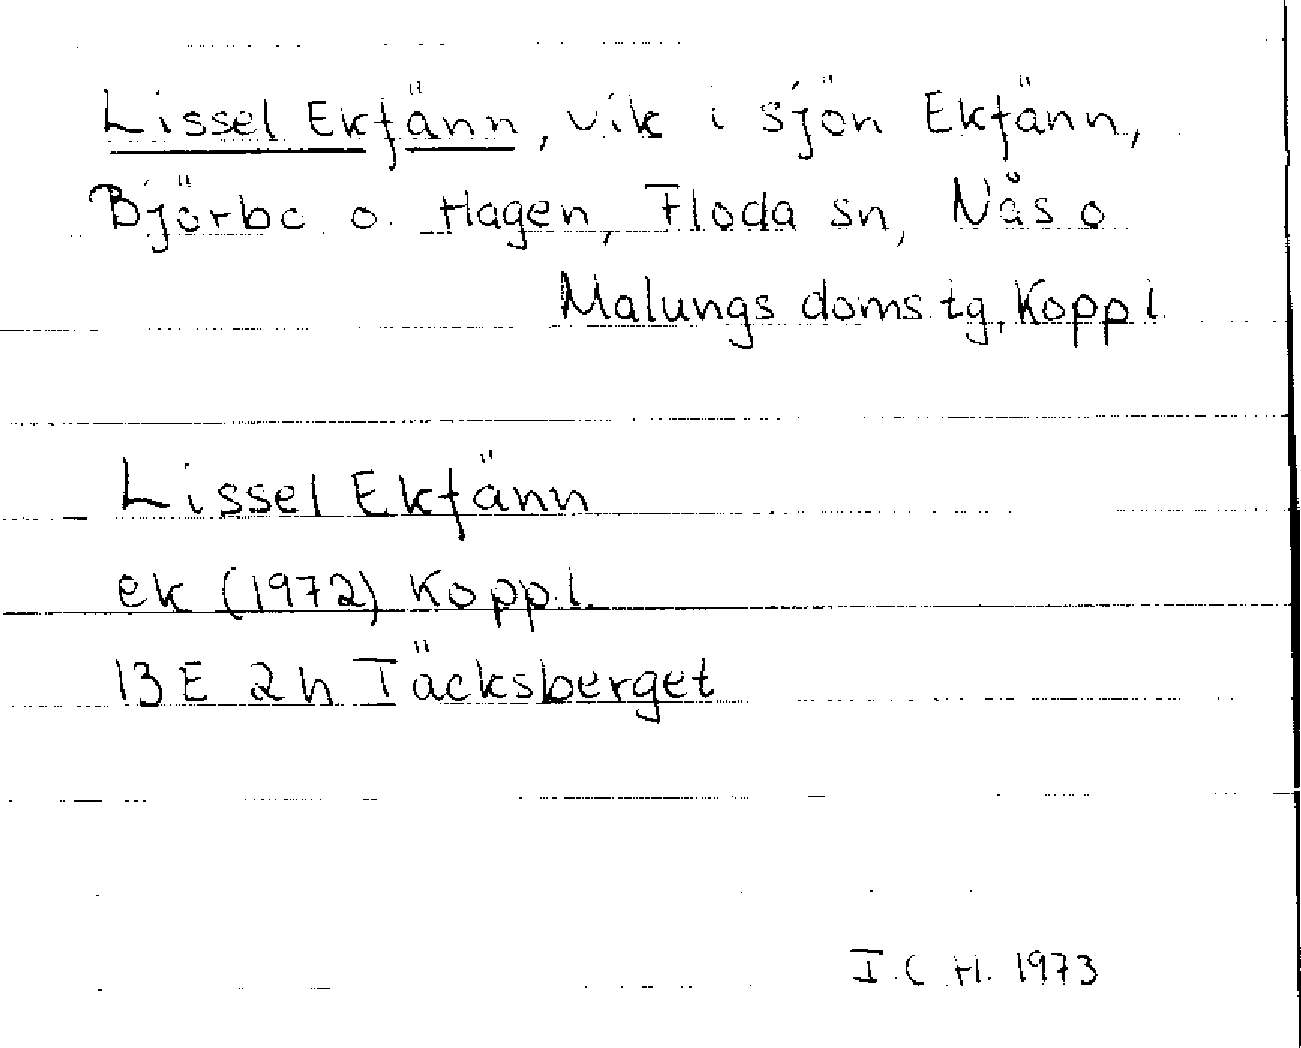 Lissel Ekfänn, vik i sjön Ekfänn,
Björbo o. Hagen, Floda sn, Nås o
Malungs domstg, Kopp l
Lissel Ekfänn
ek (1972) Kopp. l.
13 E 2 h Täcksberget
I. C. H. 1973